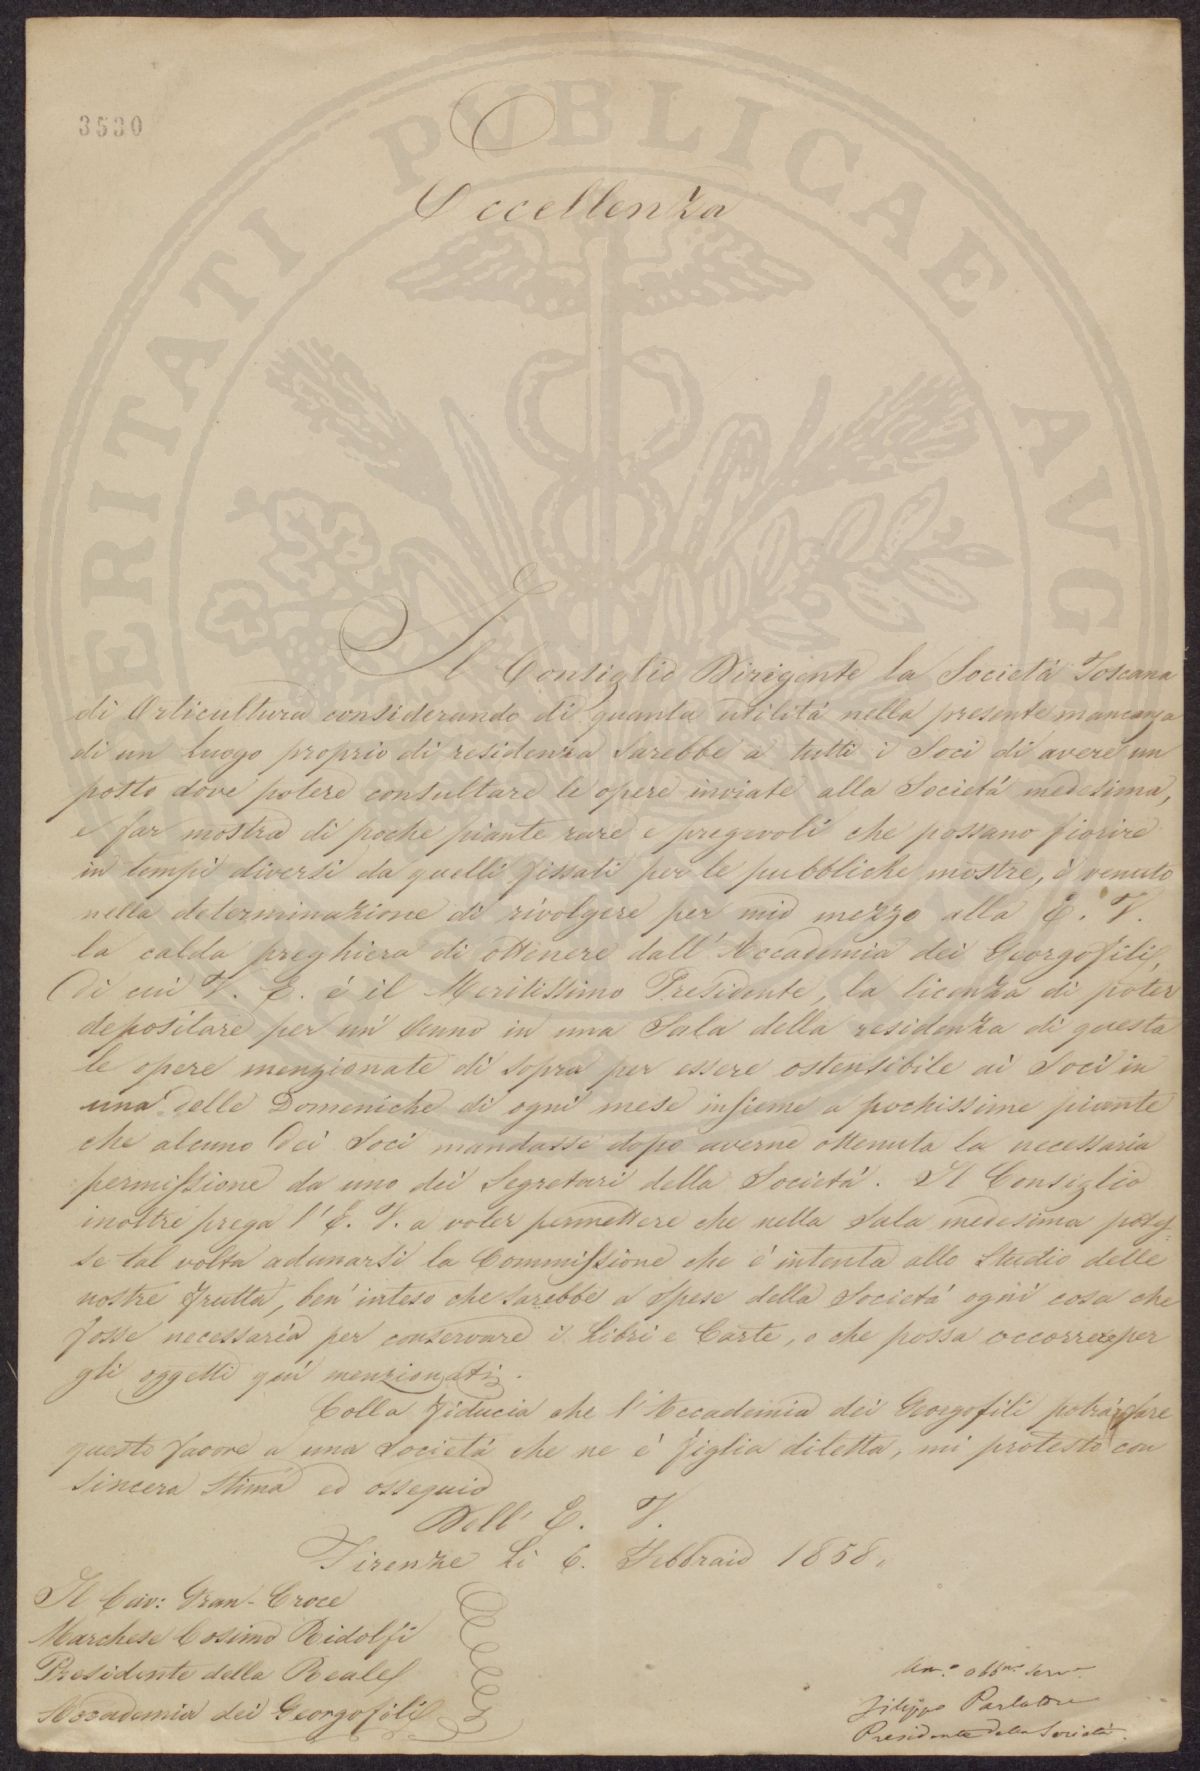 3530
PERITATI PVBLICAE AVG
Eccellenza
Il Consiglio Dirigente la Società Toscana
di Orticultura considerando di quanta utilità nella presente mancanza
di un luogo proprio di residenza sarebbe a tutti i Soci di avere un
posto dove potere consultare le opere inviate alla Società medesima,
e far mostra di poche piante rare e pregevoli che possano fiorire
in tempi diversi da quelli fissati per le pubbliche mostre, è venuto
nella determinazione di rivolgere per mio mezzo alla E. V.
la calda preghiera di ottenere dall'Accademia dei Georgofili,
di cui V. E. è il Meritissimo Presidente, la licenza di poter
depositare per un' Anno in una Sala della residenza di questa
le opere menzionate di sopra per essere ostensibile ai Soci in
una delle Domeniche di ogni mese insieme a pochissime piante
che alcuno dei Soci mandasse dopo averne ottenuta la necessaria
permissione da uno dei Segretari della Società. Il Consiglio
inoltre prega l'E. V. a voler permettere che nella Sala medesima potes=
se tal volta adunarsi la Commissione che è intenta allo Studio delle
nostre frutta, ben' inteso che sarebbe a spese della Società ogni cosa che
fosse necessaria per conservare i Libri e Carte, o che possa occorrere per
gli oggetti qui menzionati.
Colla fiducia che l'Accademia dei Georgofili potrà fare
questo favore a una Società che ne è figlia diletta, mi protesto con
sincera stima ed ossequio
Dell' E. V.
Firenze li 6. Febbraio 1858.
Il Cav: Gran-Croce
Marchese Cosimo Ridolfi
Presidente della Reale
Accademia dei Georgofili
Um.o obb.mo serv.e
Filippo Parlatore
Presidente della Società.